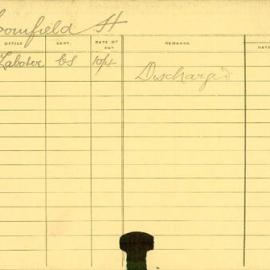 omfield H
OFFICE DEPT. DATE OF REMARKS DATE
Laborer CS 10/- Discharged